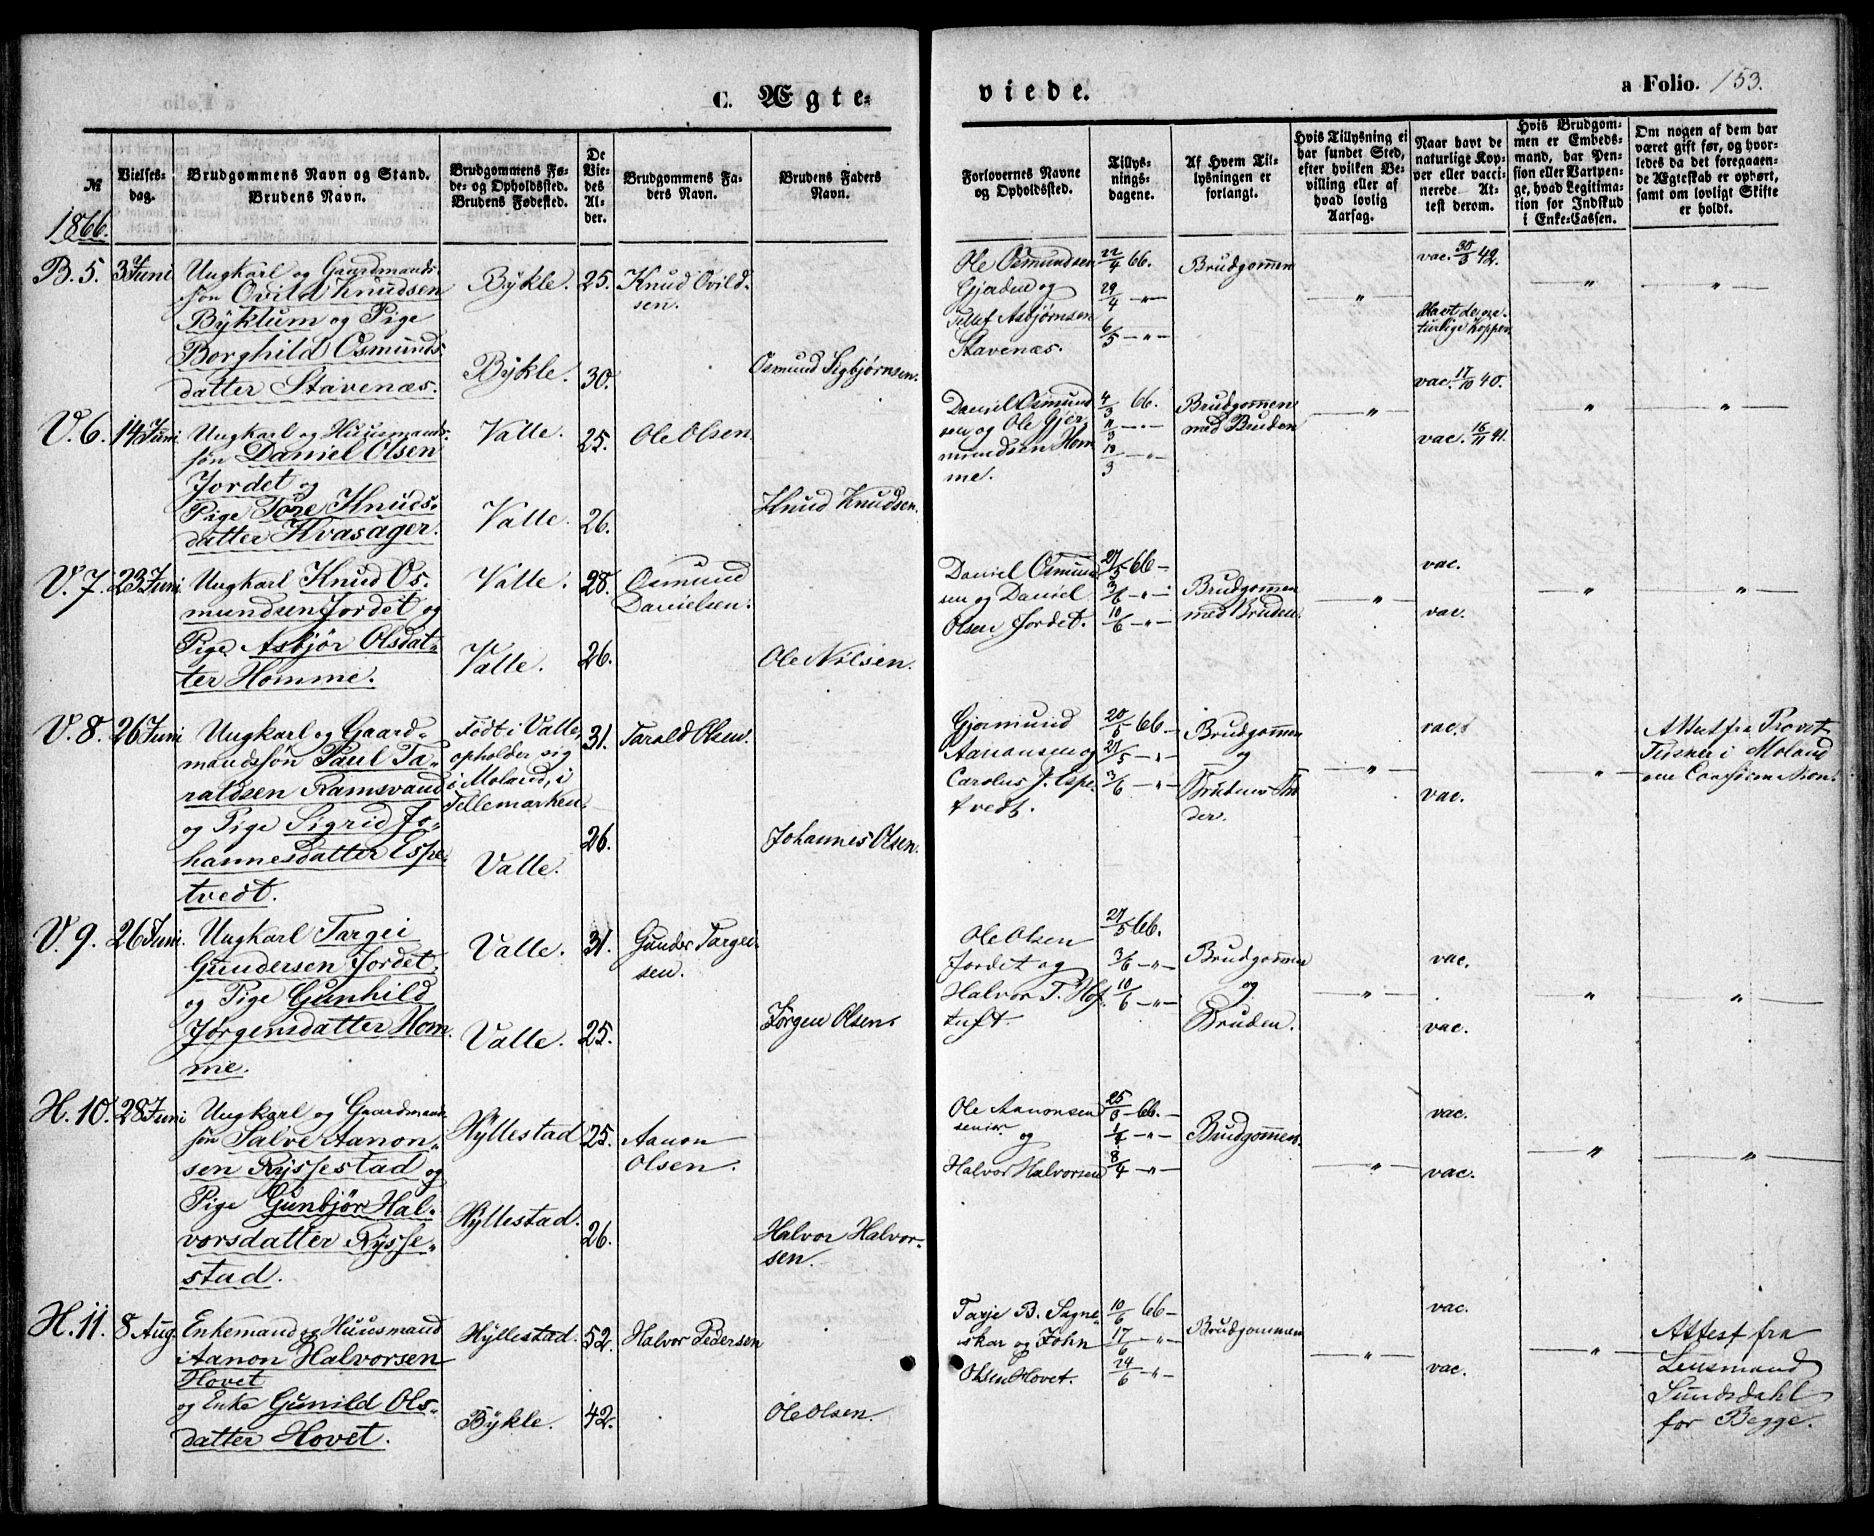 C. Ægte-
viede.
a Folio. 153.
№
Vielses-
dag.
Brudgommens Navn og Stand.
Brudens Navn.
Brudgommens Fø-
de- og Opholdssted.
Brudens Fødested.
De
Vie-
des
Al-
der.
Brudgommens Fa-
ders Navn.
Brudens Faders
Navn.
Forlovernes Navne
og Opholdssted.
Tillys-
nings-
dagene.
Af Hvem Til-
lysningen er
forlangt.
Hvis Tillysning ei
har fundet Sted,
efter hvilken Be-
villing eller af
hvad lovlig
Aarsag.
Naar havt de
naturlige Kop-
per eller vacci-
nerede At-
test derom.
Hvis Brudgom-
men er Embeds-
mand, har Pen-
sion eller Vartpen-
ge, hvad Legitima-
tion for Indskud
i Enke-Cassen.
Om nogen af dem har
været gift før, og hvor-
ledes da det foregaaen-
de Ægteskab er ophørt,
samt om lovligt Skifte
er holdt.
1866.
B. 5.
3 Juni
Ungkarl og Gaardmands-
søn Ovild Knudsen
Byklum og Pige
Borghild Osmunds-
datter Stavenæs.
Bykle.
Bykle.
25.
30.
Knud Ovild-
sen.
Osmund Sigbjørnsen.
Ole Osmundsen
Gjerden og
Tellef Asbjørnsen
Stavenæs.
22/4 66.
29/4 -"-
6/5 -"-
Brudgommen
"
vac. 30/3 42.
Havt de na-
turlige Kopper
"
"
V. 6.
14 Juni
Ungkarl og Huusmands-
søn Daniel Olsen
Jordet og
Pige Tore Knuds-
datter Kvasager.
Valle.
Valle.
25.
26.
Ole Olsen.
Knud Knudsen.
Daniel Osmund
sen og Ole Gjer-
mundsen Hom
me.
4/3 66.
11/3 -"-
18/3 -"-
Brudgommen
med Bruden
"
vac. 17/10 40.
vac. 16/11 41.
"
"
V. 7.
23 Juni
Ungkarl Knud Os-
mundsen Jordet og
Pige Asbjør Olsdat-
ter Homme.
Valle.
Valle.
28.
26.
Osmund
Danielsen.
Ole Nilsen.
Daniel Osmund
sen og Daniel
Olsen Jordet.
27/5 66 -
3/6 -"-
10/6 -"-
Brudgommen
med Bruden.
"
vac.
vac.
"
"
V. 8.
26 Juni
Ungkarl og Gaard-
mandssøn Paul Ta-
raldsen Ramsvand
og Pige Sigrid Jo-
hannesdatter Espe-
tvedt.
Født i Valle,
opholder sig
i Moland, i
Tellemarken.
Valle.
31.
26.
Tarald Olsen.
Johannes Olsen.
Gjermund
Aanonsen og
Carolus J. Espe-
tvedt.
20/5 66 -
27/5 -"-
3/6 -"-
Brudgommen
og
Brudens Fa-
der.
"
vac.
vac.
"
Attest fra Provst
i Moland
om Confirmation.
V. 9.
26 Juni.
Ungkarl Targei
Gundersen Jordet,
og Pige Gunhild
Jørgensdatter Hom
me.
Valle.
Valle.
31.
25.
Gunder Targei-
sen.
Jørgen Olsen.
Ole Olsen
Jordet og
Halvor T. Hof-
tuft.
27/5 66.
3/6 -"-
10/6 -"-
Brudgommen
og
Bruden.
"
vac.
vac.
"
"
H. 10.
28 Juni
Ungkarl og Gaardmands-
søn Salve Aanon-
sen Rysstad og
Pige Gunbjør Hal-
vorsdatter Rysse-
stad.
Hyllestad
Hyllestad.
25.
26.
Aanon
Olsen.
Halvor Halvor-
sen.
Ole Aanonsen
senior. og
Halvor Halvorsen
25/3 66. -
1/4 -"-
8/4 -"-
Brudgommen.
"
vac.
vac.
"
"
H. 11.
8 Aug.
Enkemand og Huusmand
Aanon Halvorsen
Hovet
og Enke Gunild Ols-
datter Hovet.
Hyllestad.
Bykle.
52.
42.
Halvor Pedersen
Ole Olsen.
Tarje B. Sagne-
skar og John
Olsen Hovet.
10/6 66 -
17/6 -"-
24/6 -"-
Brudgommen
"
vac.
vac.
"
Attest fra
Lensmand
Sundsdahl
for Begge.